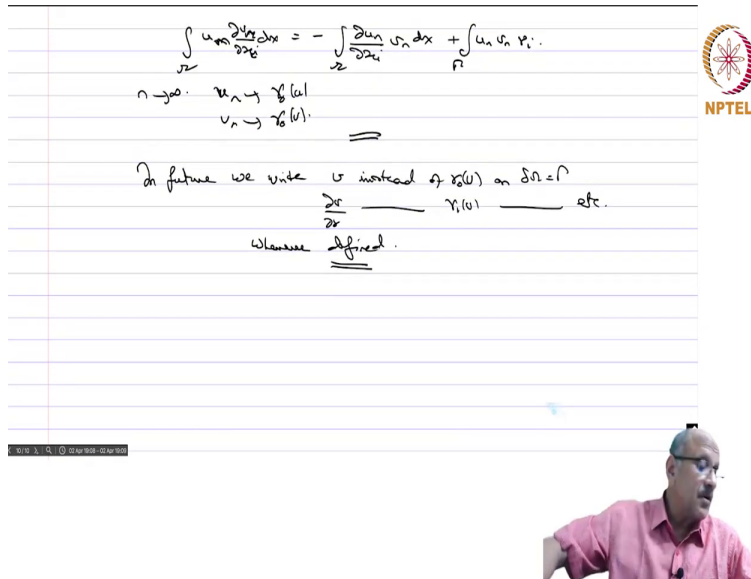 ∫_Ω u_n ∂v_n/∂x_i dx = - ∫_Ω ∂u_n/∂x_i v_n dx + ∫_Γ u_n v_n ν_i.
n→∞. u_n → γ_0(u)
v_n → γ_0(v).
In future we write v instead of γ_0(v) on ∂Ω = Γ
∂v/∂ν ——— γ_1(v) ——— etc.
whenever defined.
NPTEL
10/10
02 Apr 18:08 - 02 Apr 19:09